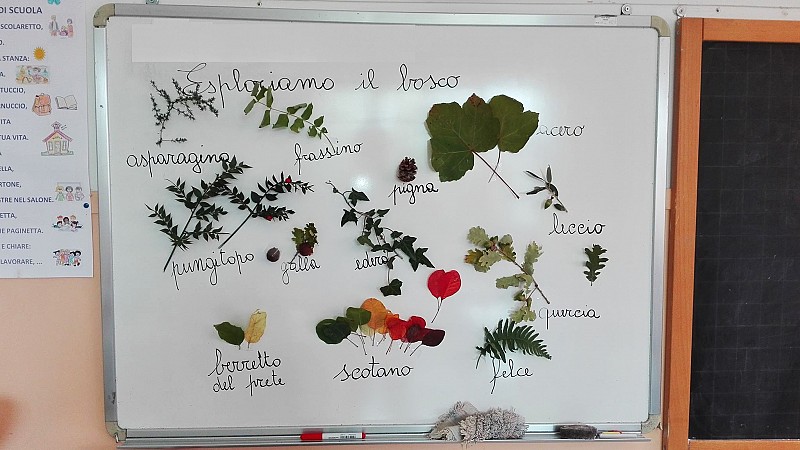 DI SCUOLA
SCOLARETTO,
STANZA:
TUCCIO,
RNUCCIO,
VITA
TUA VITA.
ELLA,
RTONE,
STRE NEL SALONE.
ETTA,
UE PAGINETTA.
E CHIARE:
LAVORARE, ...
Esploriamo il bosco
asparagina
frassino
acero
pigna
leccio
pungitopo
galla
edera
quercia
berretto
del prete
scotano
felce